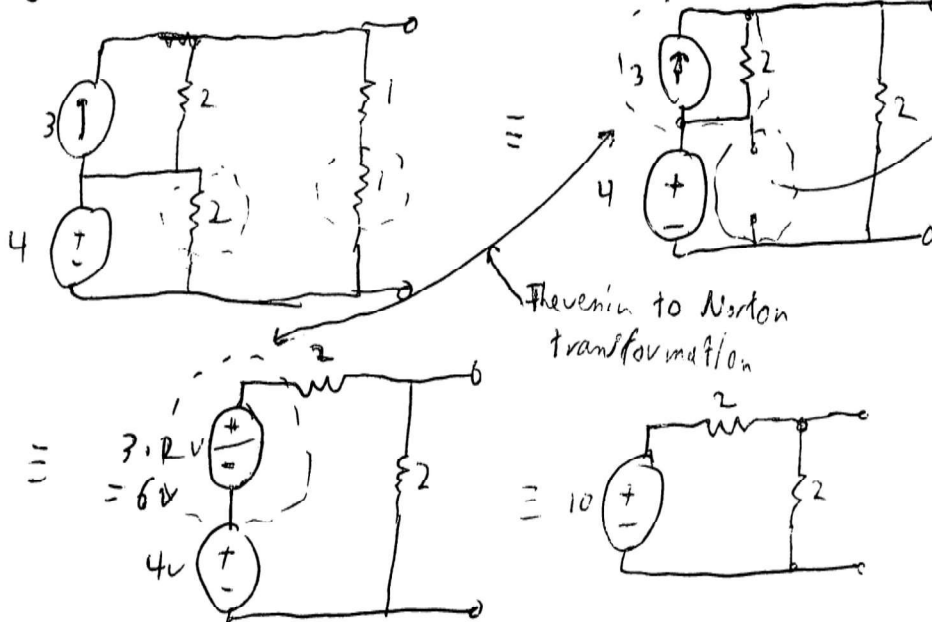 3
2
1
2
1
4
≡
3
2
2
4
+
-
Thevenin to Norton
transformation
≡
3.2 v
= 6v
2
2
4v
+
-
≡
10
+
-
2
2